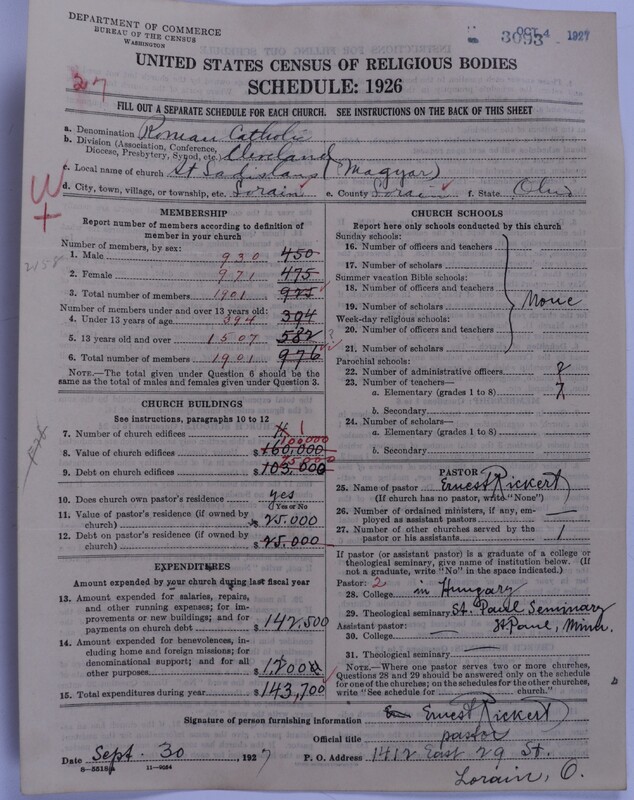 DEPARTMENT OF COMMERCE
BUREAU OF THE CENSUS
WASHINGTON
OCT 4 1927
3093
UNITED STATES CENSUS OF RELIGIOUS BODIES
SCHEDULE: 1926
37
FILL OUT A SEPARATE SCHEDULE FOR EACH CHURCH. SEE INSTRUCTIONS ON THE BACK OF THIS SHEET
a. Denomination Roman Catholic
b. Division (Association, Conference,
Diocese, Presbytery, Synod, etc.) Cleveland
c. Local name of church St Ladislaus (Magyar)
d. City, town, village, or township, etc. Lorain e. County Lorain f. State Ohio
W
+
MEMBERSHIP
Report number of members according to definition of
member in your church
Number of members, by sex:
1. Male 930 450
2. Female 971 475
3. Total number of members 1901 925
Number of members under and over 13 years old:
4. Under 13 years of age 394 394
5. 13 years old and over 1507 582 ?
6. Total number of members 1901 976
NOTE.—The total given under Question 6 should be
the same as the total of males and females given under Question 3.
CHURCH BUILDINGS
See instructions, paragraphs 10 to 12
7. Number of church edifices 1
8. Value of church edifices $ 160,000 100000
9. Debt on church edifices $ 103,000 75000
10. Does church own pastor's residence yes
(Yes or No)
11. Value of pastor's residence (if owned by
church) $ 25.000
12. Debt on pastor's residence (if owned by
church) $ 25.000
EXPENDITURES
Amount expended by your church during last fiscal year
13. Amount expended for salaries, repairs,
and other running expenses; for im-
provements or new buildings; and for
payments on church debt $ 142.500
14. Amount expended for benevolences, in-
cluding home and foreign missions; for
denominational support; and for all
other purposes $ 1,200
15. Total expenditures during year $ 143,700
CHURCH SCHOOLS
Report here only schools conducted by this church
Sunday schools:
16. Number of officers and teachers
17. Number of scholars
Summer vacation Bible schools:
18. Number of officers and teachers
19. Number of scholars
None
Week-day religious schools:
20. Number of officers and teachers
21. Number of scholars
Parochial schools:
22. Number of administrative officers 2
23. Number of teachers—
a. Elementary (grades 1 to 8) 7
b. Secondary
24. Number of scholars—
a. Elementary (grades 1 to 8)
b. Secondary
PASTOR
25. Name of pastor Ernest Rickert
(If church has no pastor, write "None")
26. Number of ordained ministers, if any, em-
ployed as assistant pastors —
27. Number of other churches served by the
pastor or his assistants 1
If pastor (or assistant pastor) is a graduate of a college or
theological seminary, give name of institution below. (If
not a graduate, write "No" in the space indicated.)
Pastor: 2
28. College in Hungary
29. Theological seminary St. Paul Seminary
Assistant pastor: St Paul, Minn.
30. College —
31. Theological seminary —
NOTE.—Where one pastor serves two or more churches,
Questions 28 and 29 should be answered only on the schedule
for one of the churches; on the schedules for the other churches,
write "See schedule for church."
Signature of person furnishing information Ernest Rickert
Official title pastor
Date Sept. 30, 1927 P. O. Address 1412 East 29 St.
8—5518a 11—9054
Lorain, O.